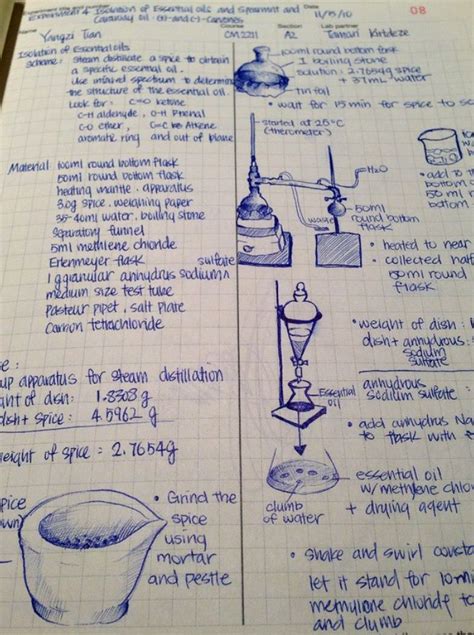 Experiment title and number
Experiment 4: Isolation of Essential oils and Spearmint and
Caraway Oil: (+)-and(-)-Carvones
Date
11/15/10
08
Name
Yangzi Tian
Course
CM2211
Section
A2
Lab partner
Tamari Kirtdeze
Isolation of Essential oils
scheme: steam distillate a spice to obtain
a specific essential oil.
Use infrared spectrum to determine
the structure of the essential oil.
Look for: C=O ketone
C-H aldehyde, O-H Phenol
C-O ether, C=C Alkene
aromatic ring and out of plane
Material: 100ml round bottom flask
50ml round bottom flask
heating mantle, apparatus
3.0g spice, weighing paper
35-40ml water, boiling stone
separatory funnel
5ml methlene chloride
Erlenmeyer flask sulfate
1g granular anhydrus sodium^
medium size test tube
Pasteur pipet, salt plate
Carbon tetrachloride
up apparatus for steam distillation
ght of dish: 1.8308g
dish + spice: 4.5962g
weight of spice = 2.7654g
spice
• Grind the
spice
using
mortar
and pestle
100ml round bottom flask
1 boiling stone
solution: 2.7654g spice
+ 37mL water
tin foil
• wait for 15 min for spice to
started at 25°C
(thermometer)
H2O
waste
50ml
round bottom
flask
• add to
bottom
50 ml
bottom
• heated to near
• collected half
50ml round
flask
• weight of dish:
dish + anhydrous:
sodium
sulfate
Essential
oil
anhydrous
sodium sulfate
• add anhydrus Na
to flask with
essential oil
w/ methylene chlor
+ drying agent
clumb
of water
• shake and swirl consta
let it stand for 10mi
methylene chloride to
and clumb